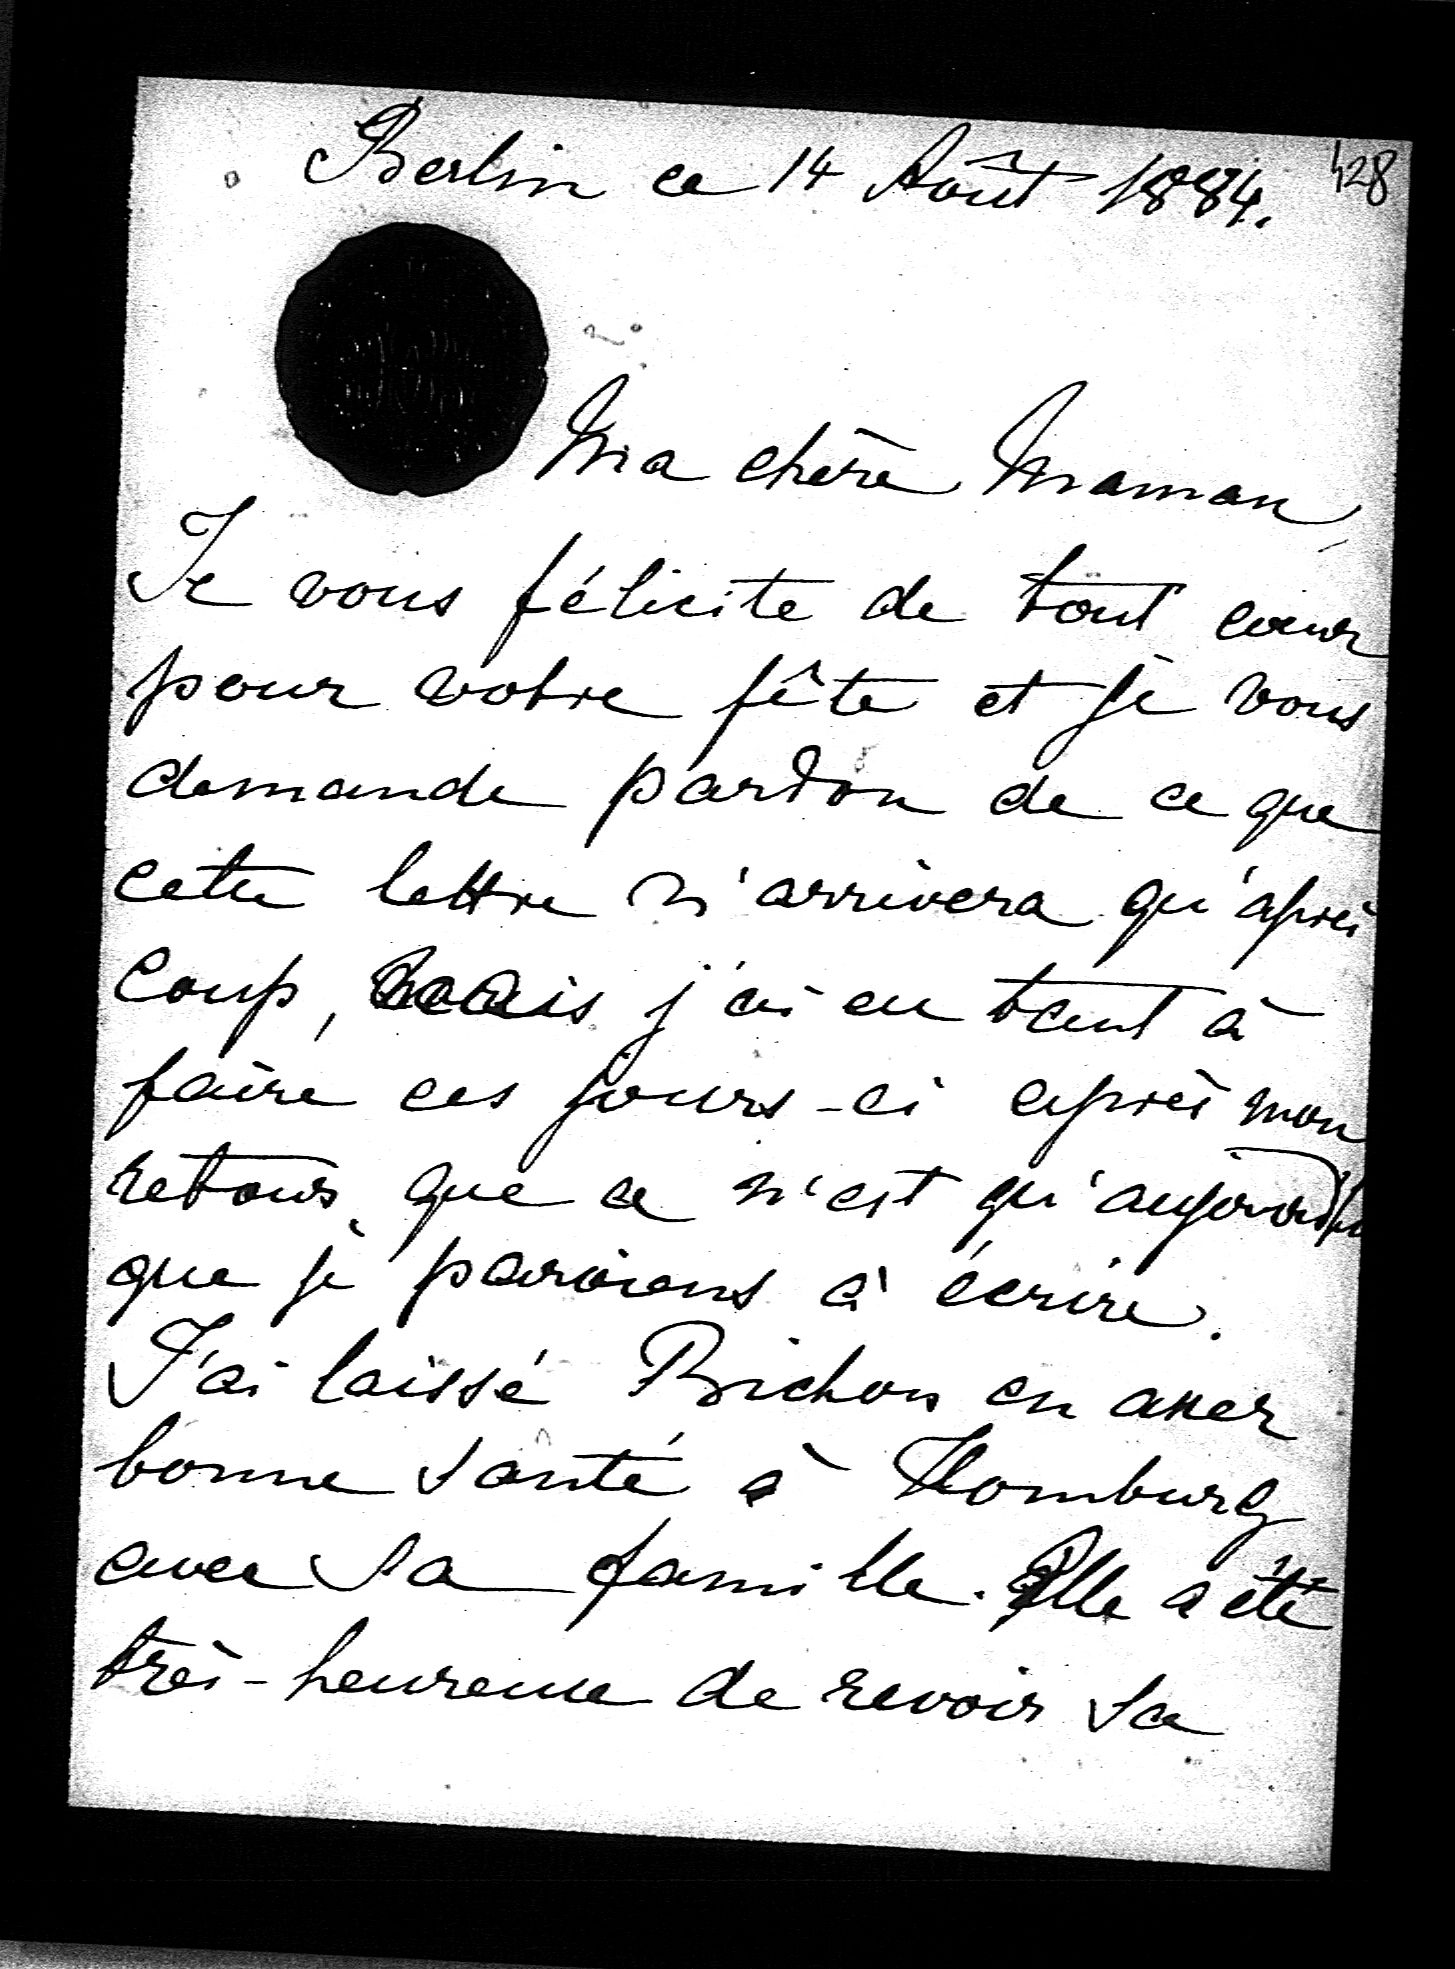 428
Berlin ce 14 Août 1884.
Ma chère Maman,
Je vous félicite de tout coeur
pour votre fête et je vous
demande pardon de ce que
cette lettre n'arrivera qu'après
coup, mais j'ai eu tant à
faire ces jours-ci après mon
retour, que ce n'est qu'aujourd'hui
que je parviens à écrire.
J'ai laissé Bichon en assez
bonne santé à Homburg
avec sa famille. Elle a été
très-heureuse de revoir sa